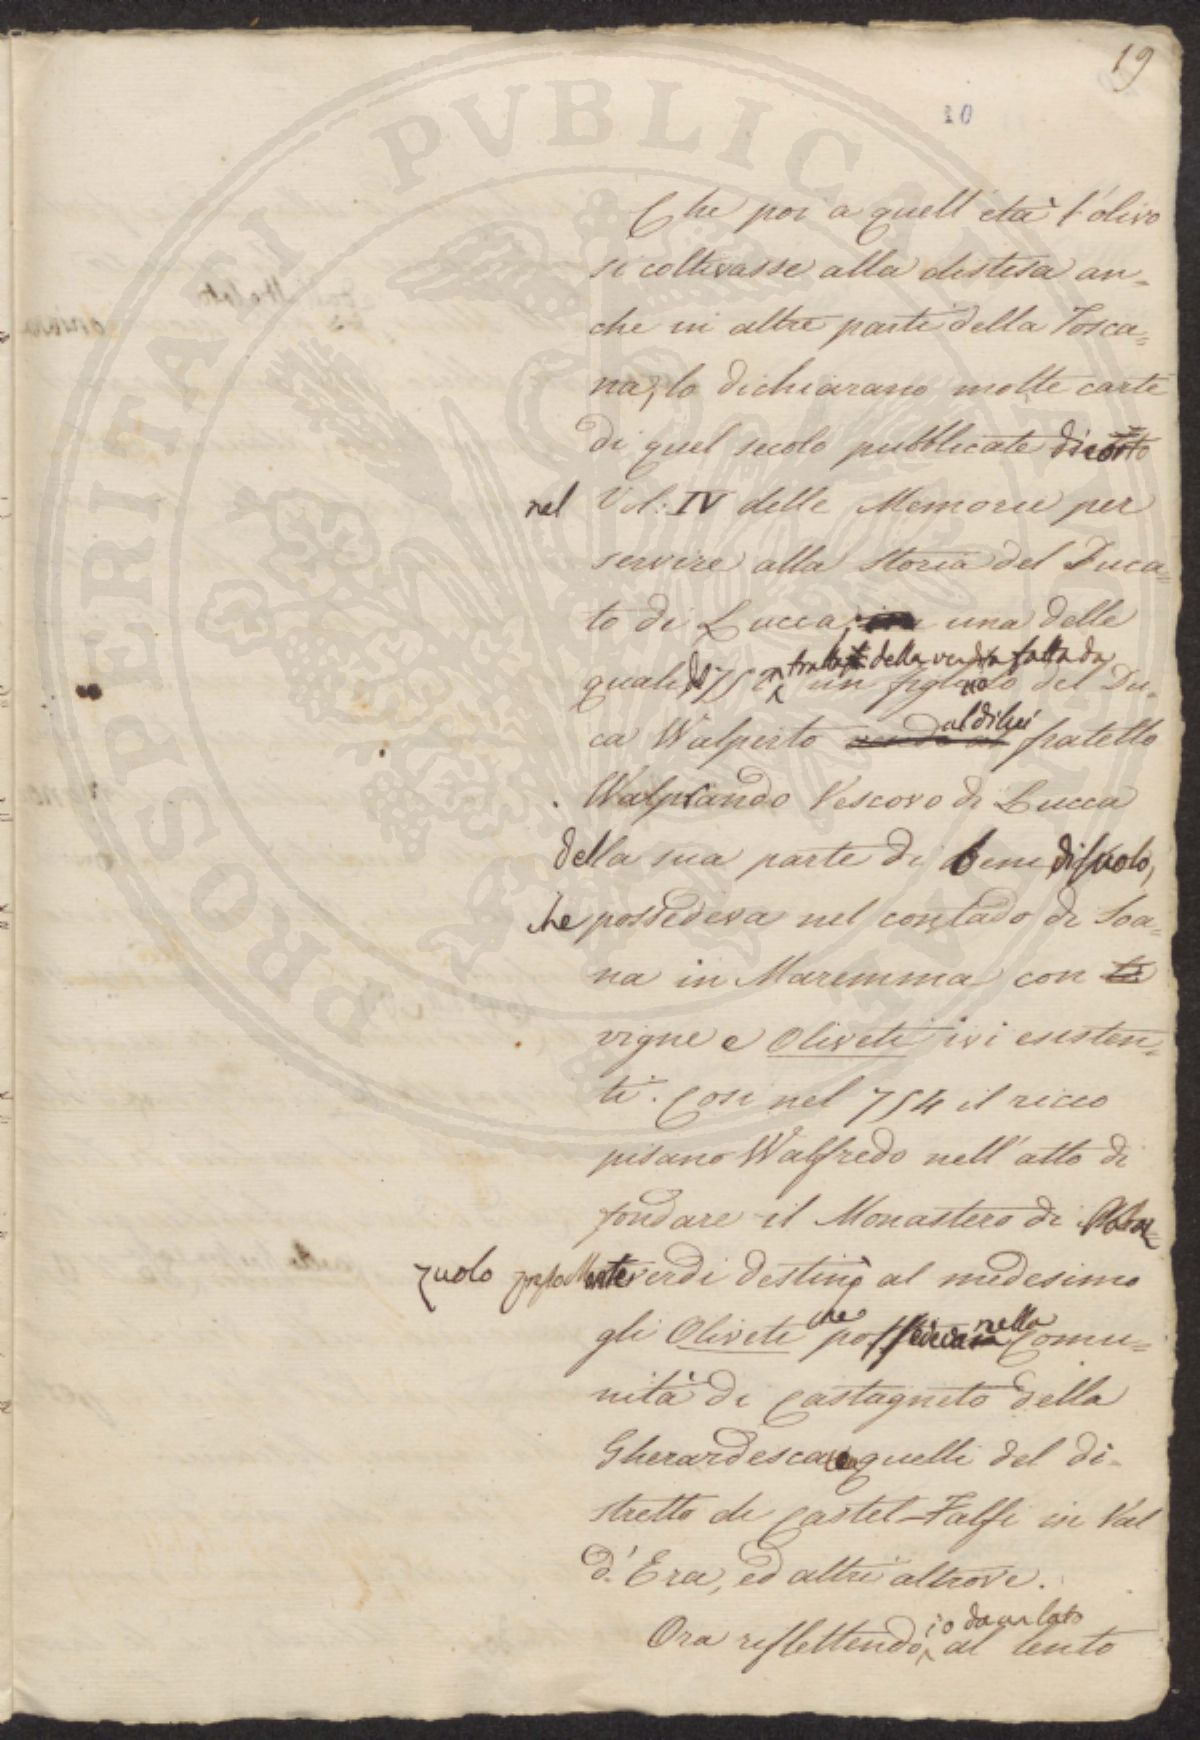 19
10
Che poi a quell'età l'olivo
si coltivasse alla distesa an-
che in altre parti della Tosca=
na, lo dichiarano molte carte
di quel secolo pubblicate
nel Vol: IV delle Memorie per
servire alla storia del Duca-
to di Lucca; una delle
tratta della vendita fatta da
quali un figlio del Du-
al di lui
ca Walperto fratello
Walprando Vescovo di Lucca
della sua parte di beni di suolo,
che possedeva nel contado di Soa-
na in Maremma con le
vigne e Oliveti ivi esisten-
ti. Così nel 754 il ricco
pisano Walfredo nell'atto di
fondare il Monastero di Palaz=
zuolo presso Monteverdi destinò al medesimo
che nella
gli Oliveti possedeva Comu=
nità di Castagneto della
Gherardesca quelli del di-
stretto di Castel-Falfi in Val
d'Era, ed altri altrove.
io da un lato
Ora riflettendo, al lento
PROSPERITATI PVBLICAE